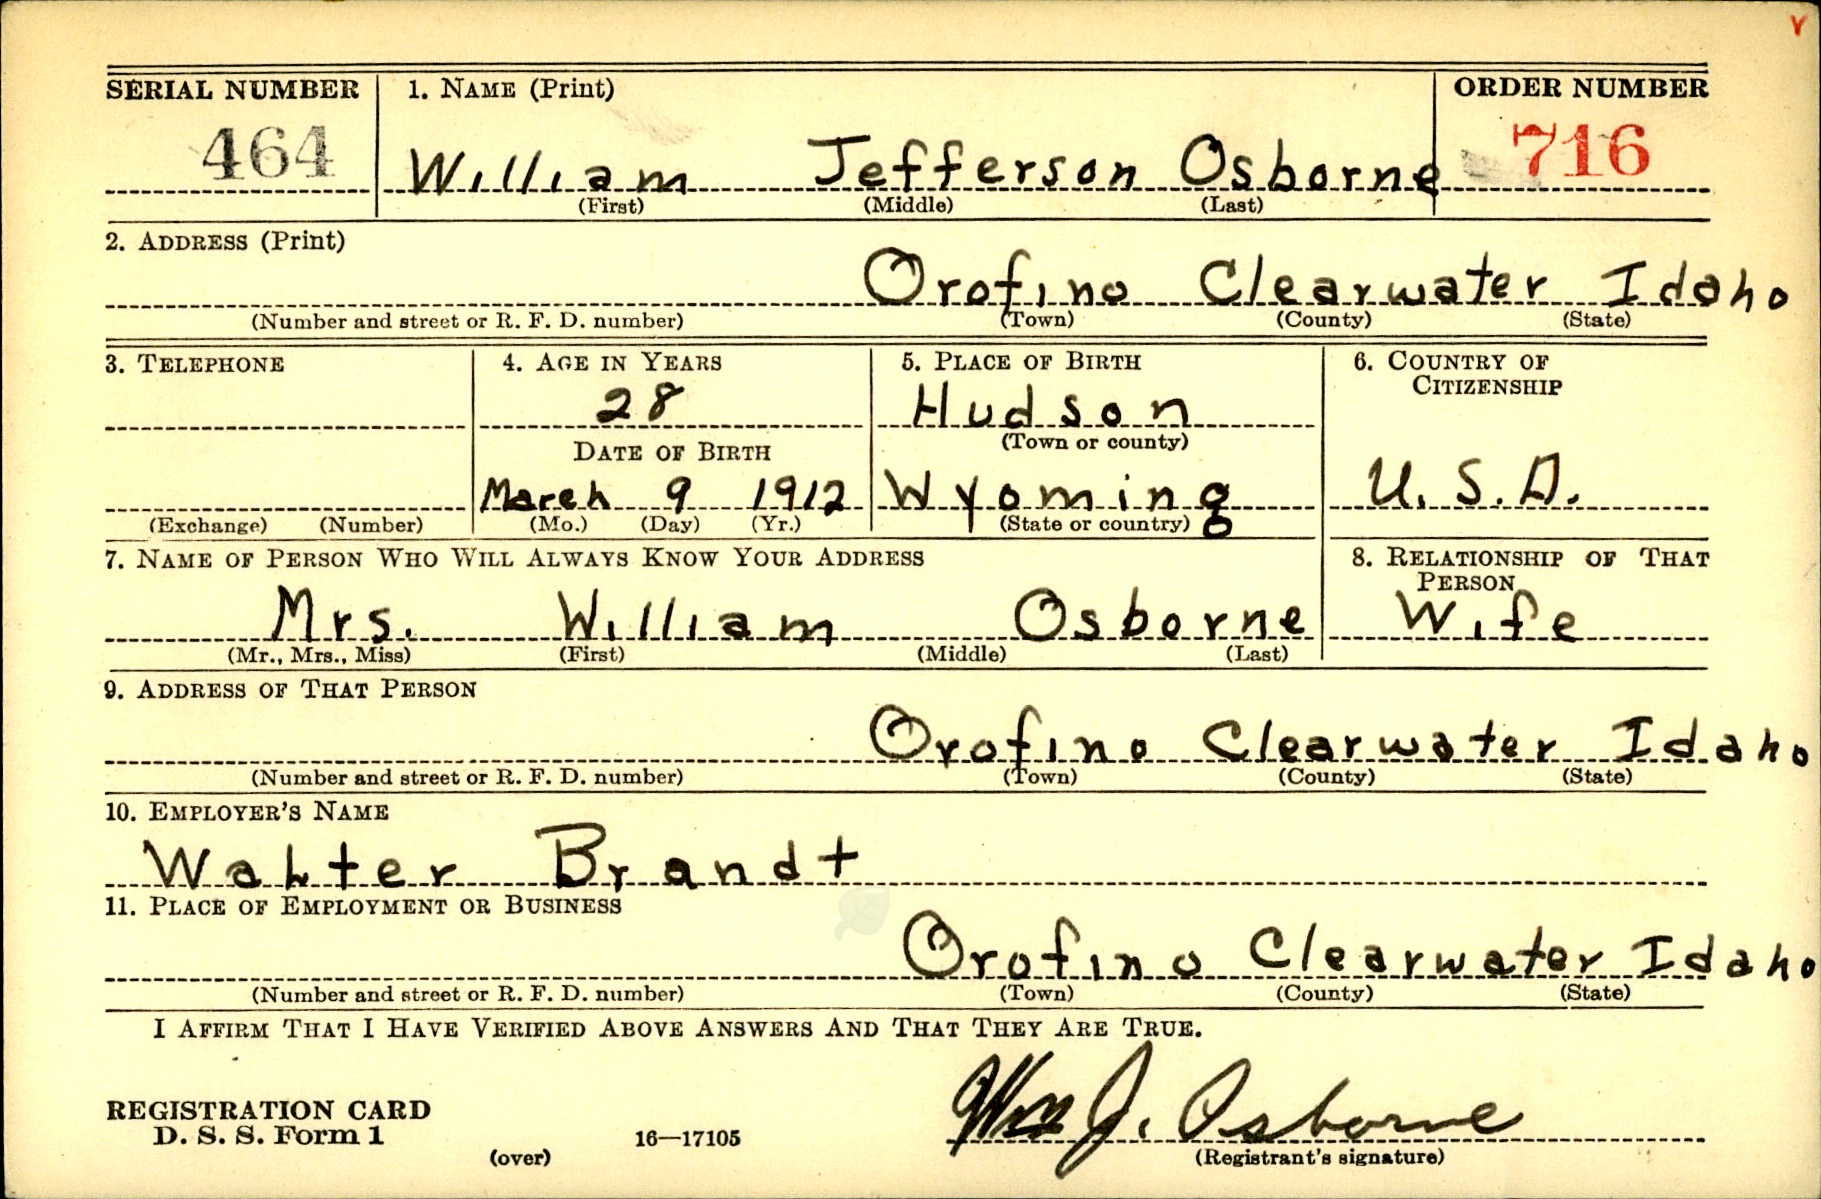 Y
SERIAL NUMBER 1. NAME (Print) ORDER NUMBER
464 William Jefferson Osborne 716
(First) (Middle) (Last)
2. ADDRESS (Print)
Orofino Clearwater Idaho
(Number and street or R. F. D. number) (Town) (County) (State)
3. TELEPHONE 4. AGE IN YEARS 5. PLACE OF BIRTH 6. COUNTRY OF
CITIZENSHIP
28 Hudson
(Town or county)
DATE OF BIRTH
March 9 1912 Wyoming U.S.A.
(Exchange) (Number) (Mo.) (Day) (Yr.) (State or country)
7. NAME OF PERSON WHO WILL ALWAYS KNOW YOUR ADDRESS 8. RELATIONSHIP OF THAT
PERSON
Mrs. William Osborne Wife
(Mr., Mrs., Miss) (First) (Middle) (Last)
9. ADDRESS OF THAT PERSON
Orofino Clearwater Idaho
(Number and street or R. F. D. number) (Town) (County) (State)
10. EMPLOYER'S NAME
Walter Brandt
11. PLACE OF EMPLOYMENT OR BUSINESS
Orofino Clearwater Idaho
(Number and street or R. F. D. number) (Town) (County) (State)
I AFFIRM THAT I HAVE VERIFIED ABOVE ANSWERS AND THAT THEY ARE TRUE.
Wm J. Osborne
REGISTRATION CARD
D. S. S. Form 1 16—17105
(over) (Registrant's signature)